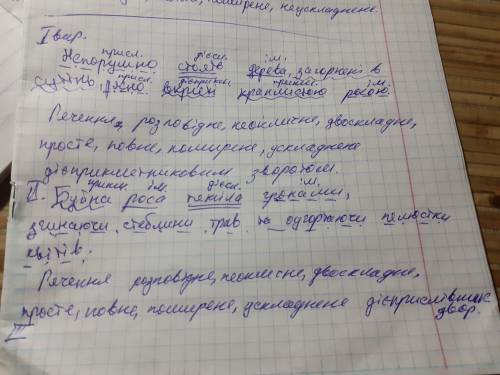 поширене, неускладнене.
I вар.
присл. дієсл. ім.
Непорушно стоять дерева, загорнені в
присл. дієприкм. прикм. ім.
сутінь, рясно вкриті краплистою росою.
Речення, розповідне, неокличне, двоскладне,
просте, повне, поширене, ускладнене
дієприкметниковим зворотом.
прикм. ім. дієсл. ім.
II. Буйна роса текіла гронами,
згинаючи стеблини трав та обгортаючи пелюстки
квітів.
Речення розповідне, неокличне, двоскладне,
просте, повне, поширене, ускладнене дієприслівник
звор.